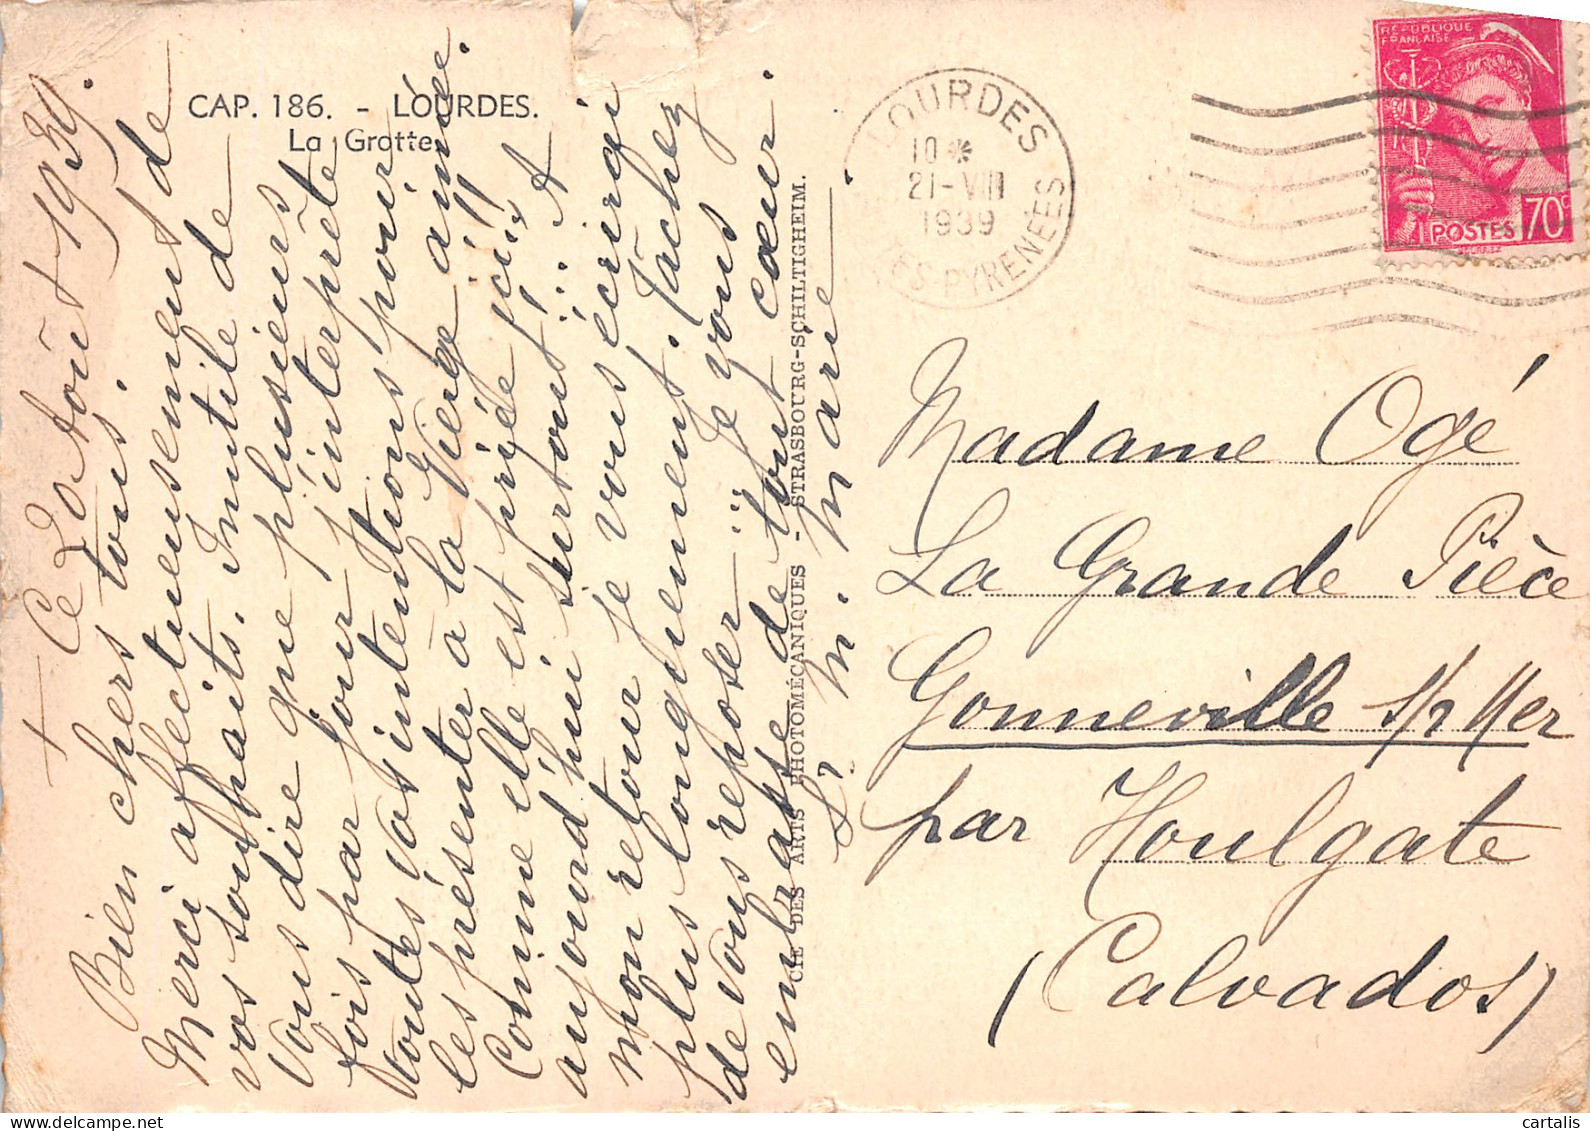 CAP. 186. - LOURDES.
La Grotte
+ Ce 20 Août 1939.
Bien chers tous.
Merci affectueusement de
vos souhaits. Inutile de
vous dire que plusieurs
fois par jour j'interprète
toutes vos intentions pour
les présenter à la Vierge aimée.
Comme elle est priée ici!!
aujourd'hui surtout!... A
mon retour je vous écrirai
plus longuement. Tâchez
de vous reposer... Je vous
embrasse de tout cœur
Sr M. Marie.
CIE DES ARTS PHOTOMÉCANIQUES - STRASBOURG-SCHILTIGHEIM.
LOURDES
10 *
21-VIII
1939
TES-PYRENEES
REPUBLIQUE
FRANÇAISE
POSTES 70c
Madame Ogé
La Grande Pièce
Gonneville s/ Mer
par Houlgate
(Calvados)
cartalis